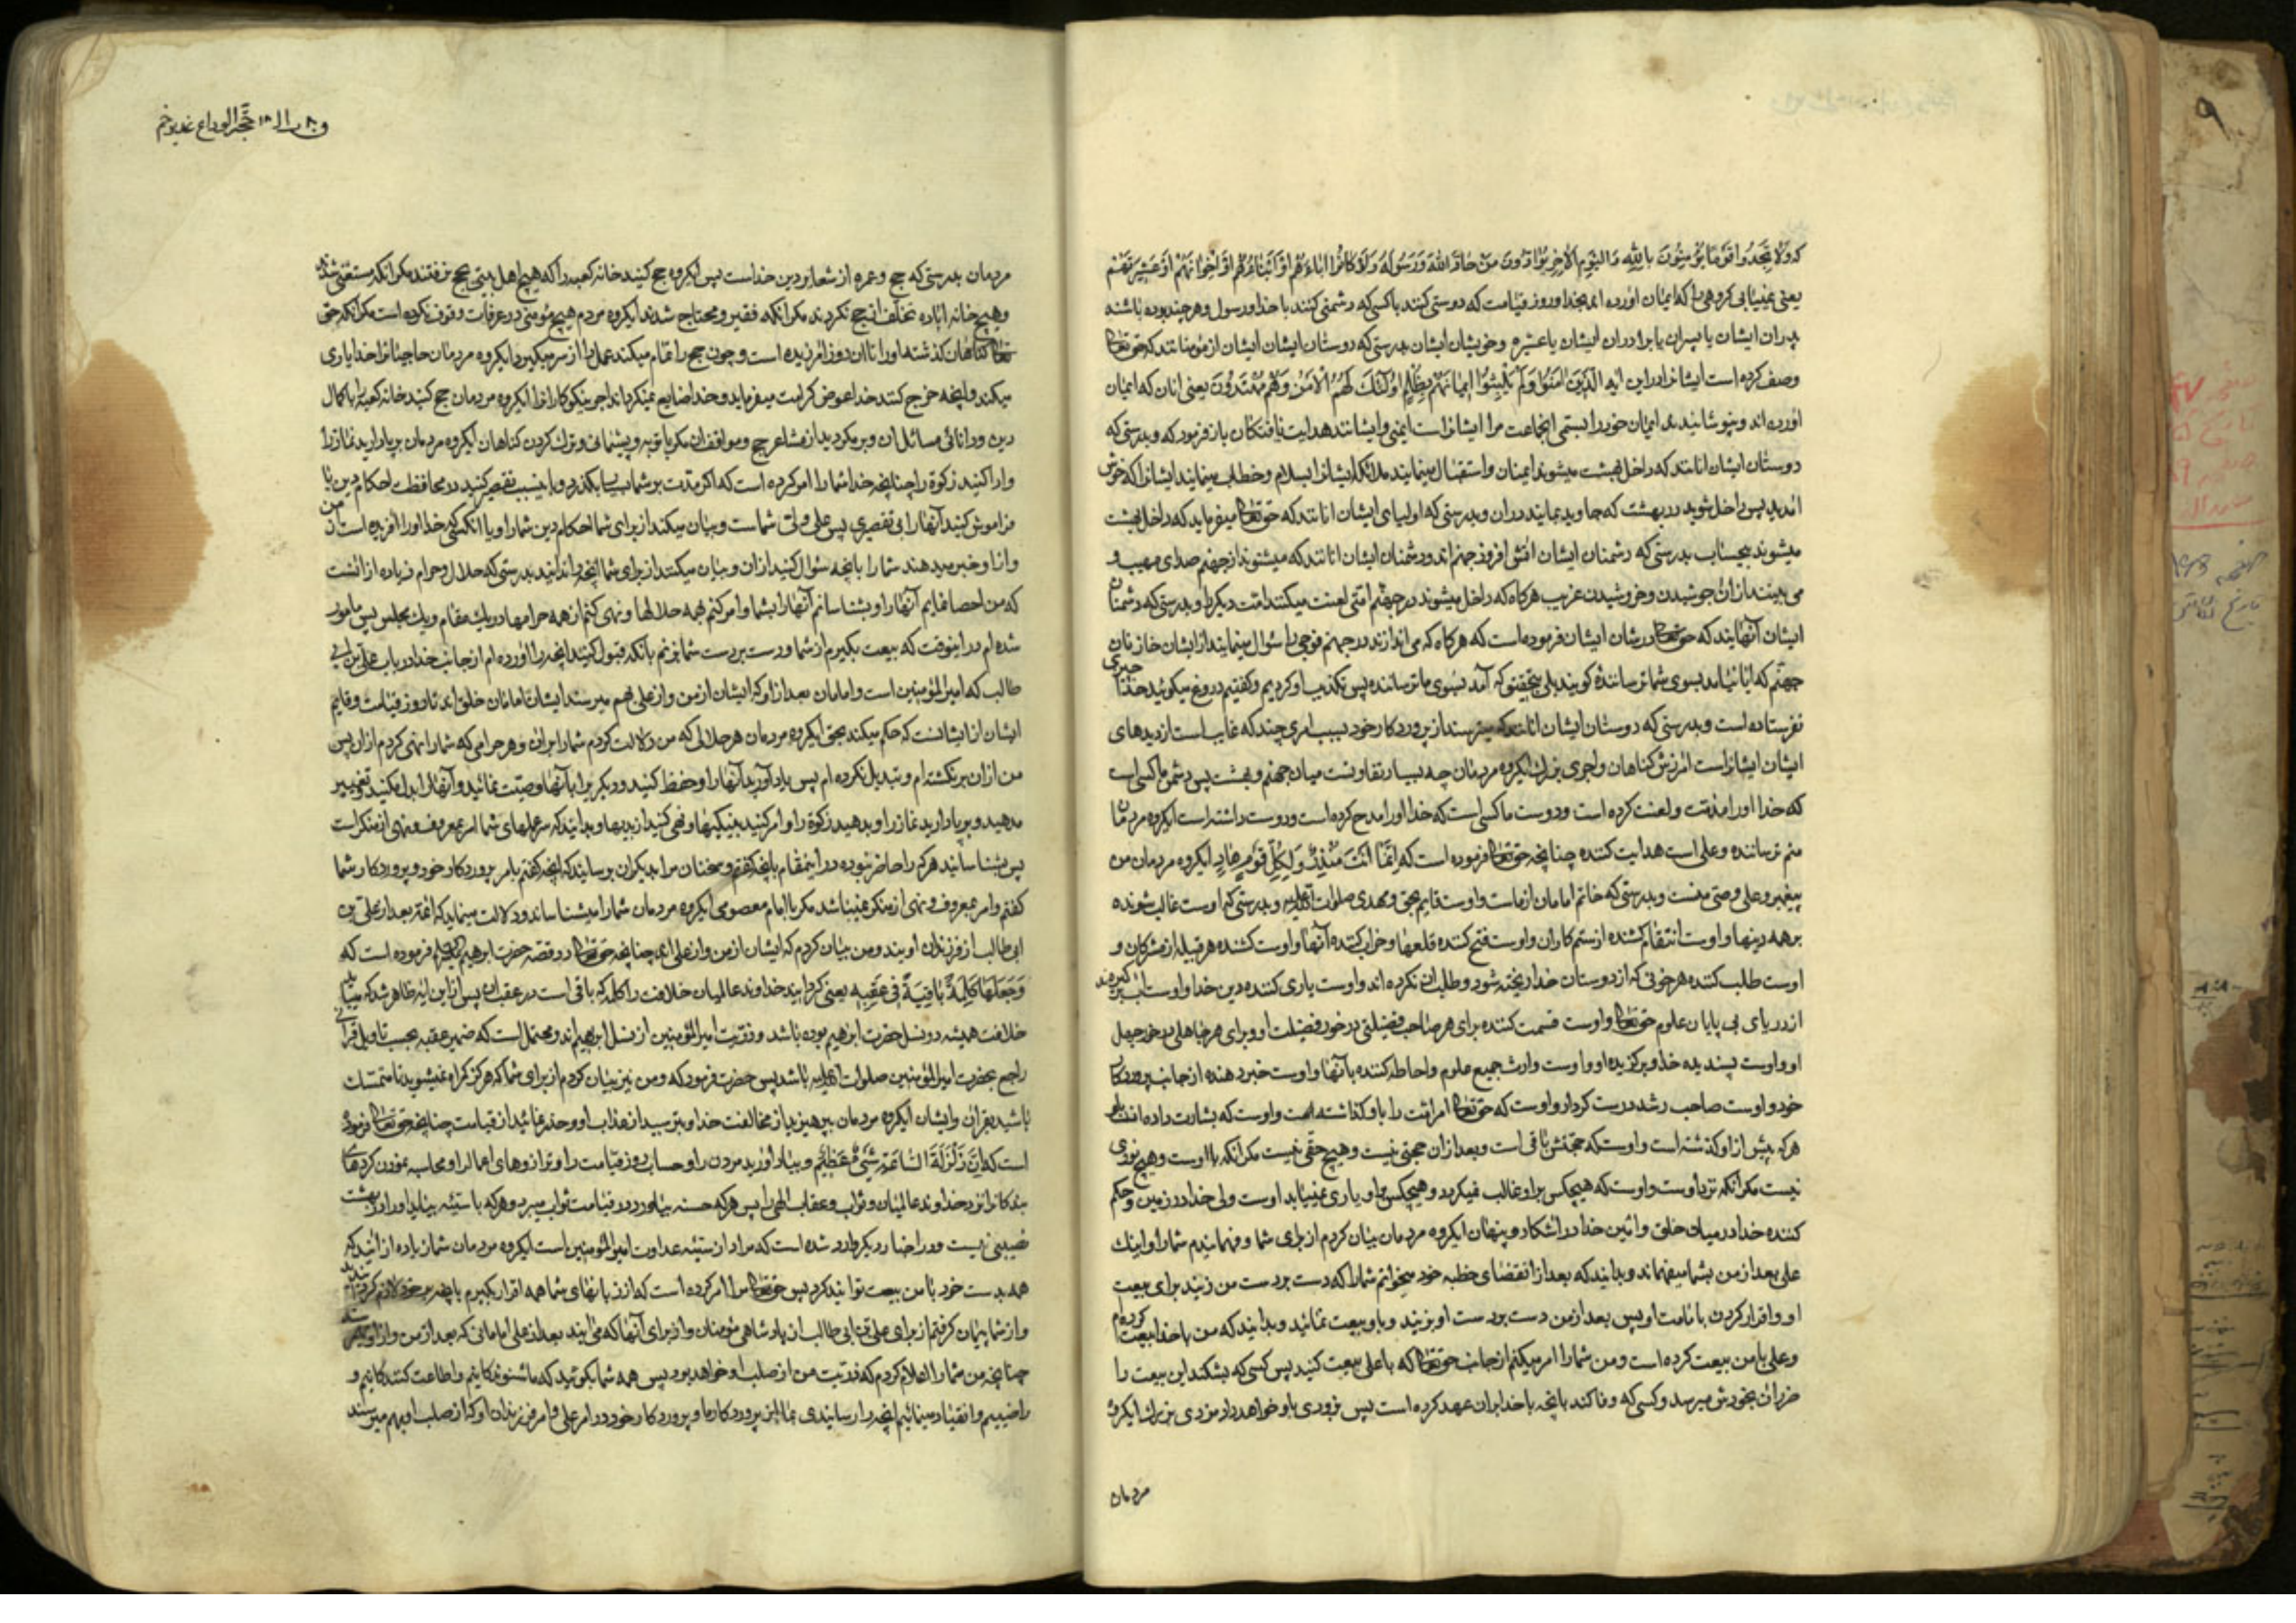 که وَلَا تَجِدُ قَوْمًا يُؤْمِنُونَ بِاللّٰهِ وَالْيَوْمِ الْآخِرِ يُوَادُّونَ مَنْ حَادَّ اللّٰهَ وَرَسُولَهُ وَلَوْ كَانُوا آبَاءَهُمْ أَوْ أَبْنَاءَهُمْ أَوْ إِخْوَانَهُمْ أَوْ عَشِيرَتَهُمْ
یعنی نمییابی کروهی را که ایمان آورده اند بخدا و روز قیامت که دوستی کنند با کسی که دشمنی کنند با خدا و رسول و هر چند بوده باشند
پدران ایشان یا پسران یا برادران ایشان یا عشیره و خویشان ایشان بدرستی که دوستان ایشان ایشان از مؤمنانند که حقتعالی
وصف کرده است ایشانرا در این آیه الَّذِينَ آمَنُوا وَلَمْ يَلْبِسُوا إِيمَانَهُمْ بِظُلْمٍ أُولٰئِكَ لَهُمُ الْأَمْنُ وَهُمْ مُهْتَدُونَ یعنی آنان که ایمان
آورده اند و نپوشانیدند ایمان خود را بستمی انجماعت مر ایشانراست ایمنی و ایشانند هدایت یافتکان باز فرمود که و بدرستی که
دوستان ایشان آنانند که داخل بهشت میشوند ایمنان و استقبال مینمایند ملائکه ایشانرا بسلام و خطاب مینمایند ایشانرا که خوش
آمدید پس داخل شوید در بهشت که جاوید بمانید در آن و بدرستی که اولیای ایشان آنانند که حقتعالی میفرماید که داخل بهشت
میشوند بیحساب بدرستی که دشمنان ایشان آتش افروز جهنم اند و دشمنان ایشان آنانند که میشنوند از جهنم صدای مهیب و
می بینند از آن جوشیدن و خروشیدن غریب هرکاه که داخل میشوند در جهنم امتی لعنت میکنند امت دیکر را و بدرستی که دشمنان
ایشان آنهایند که حقتعالی در شان ایشان فرموده است که هرکاه که می اندازند در جهنم فوجی را سؤال مینمایند از ایشان خازنان
جهنم که آیا نیامد بسوی شما ترساننده کویند بلی بتحقیق که آمد بسوی ما ترساننده پس تکذیب او کردیم و کفتیم دروغ میکوئید خدا چیزی
نفرستاده است و بدرستی که دوستان ایشان آنانند که میترسند از پروردکار خود بسبب امری چند که غایب است از دیدهای
ایشان ایشانراست آمرزش کناهان و اجری بزرک ایکروه مردمان چه بسیار تفاوتست میان جهنم و بهشت پس دشمن ما کسی است
که خدا او را مذمت و لعنت کرده است و دوست ما کسی است که خدا او را مدح کرده است و دوست داشته است ایکروه مردمان
منم ترساننده و علی است هدایت کننده چنانچه حقتعالی فرموده است که إِنَّمَا أَنْتَ مُنْذِرٌ وَلِكُلِّ قَوْمٍ هَادٍ ایکروه مردمان من
پیغمبر و علی وصی منست و بدرستی که خاتم امامان از ماست و اوست قایم بحق و مهدی صلوات الله علیه و بدرستی که اوست غالب شونده
بر همه دینها و اوست انتقام کشنده از ستم کاران و اوست فتح کننده قلعها و خراب کننده آنها و اوست کشنده هر قبیله از مشرکان و
اوست طلب کننده هر خونی که از دوستان خدا ریخته شود و طلب آن نکرده اند و اوست یاری کننده دین خدا و اوست آب کیرنده
از دریای بی پایان علوم حقتعالی و اوست قسمت کننده برای هر صاحب فضیلتی در خور فضیلت او و برای هر جاهلی در خور جهل
او و اوست پسندیده خدا و برکزیده او و اوست وارث جمیع علوم و احاطه کننده بآنها و اوست خبر دهنده از جانب پروردکار
خود و اوست صاحب رشد درست کردار و اوست که حقتعالی امر امت را باو کذاشته است و اوست که بشارت داده اند باو
هرکه پیش از او کذشته است و اوست که حجتش باقی است و بعد از آن حجتی نیست و هیچ حقی نیست مکر آنکه با اوست و هیچ نوری
نیست مکر آنکه نزد اوست و اوست که هیچکس بر او غالب نمیکردد و هیچکس بر او یاری نمییابد اوست ولی خدا در زمین و حکم
کننده خدا در میان خلق و امین خدا در آشکار و پنهان ایکروه مردمان بیان کردم از برای شما و فهمانیدم شما را و اینک
علی بعد از من بشما میفهماند و بدانید که بعد از انقضای خطبه خود میخوانم شما را که دست بر دست من زنید برای بیعت
او و اقرار کردن بامامت او پس بعد از من دست بر دست او بزنید و باو بیعت نمائید و بدانید که من با خدا بیعت کرده‌ام
و علی با من بیعت کرده است و من شما را امر میکنم از جانب حقتعالی که با علی بیعت کنید پس کسی که بشکند این بیعت را
ضرر آن بخودش میرسد و کسی که وفا کند بآنچه با خدا بر آن عهد کرده است پس بزودی باو خواهد داد مزدی بزرک ایکروه
مردمان
حجة الوداع غدیر خم
مردمان بدرستی که حج و عمره از شعایر دین خداست پس ایکروه حج کنید خانه کعبه را که هیچ اهل بیتی بحج نرفتند مکر آنکه مستغنی شدند
و هیچ خانه آباده تخلف از حج نکردند مکر آنکه فقیر و محتاج شدند ایکروه مردم هیچ مؤمنی در عرفات وقوف نکرده است مکر آنکه حق
تعالی کناهان کذشته او را تا آن روز آمرزیده است و چون حج را تمام میکند عمل را از سر میکیرد ایکروه مردمان حاجیانرا خدا یاری
میکند و آنچه خرج کنند خدا عوض کرامت میفرماید و خدا ضایع نمیکرداند اجر نیکوکارانرا ایکروه مردمان حج کنید خانه کعبه را با کمال
دین و دانائی مسائل آن و برمکردید از مشاعر حج و مواقف آن مکر با توبه و پشیمانی و ترک کردن کناهان ایکروه مردمان برپا دارید نماز را
و ادا کنید زکوة را چنانچه خدا شما را امر کرده است که اکر مدت بر شما بسیار بکذرد و باین سبب تقصیر کنید در محافظت احکام دین یا
فراموش کنید آنها را بی تقصیری پس علی ولی شماست و بیان میکند از برای شما احکام دین شما را و یا آنکسی که خدا او را آفریده است از من
و از او خبر میدهند شما را بآنچه سؤال کنید از آن و بیان میکنند از برای شما آنچه را ندانید بدرستی که حلال و حرام زیاده از آنست
که من احصا نمایم آنها را و بشناسانم آنها را بشما و امر کنم بهمه حلالها و نهی کنم از همه حرامها در یک مقام و یک مجلس پس مامور
شده ام در اینوقت که بیعت بکیرم از شما و دست بر دست شما بزنم بآنکه قبول کنید آنچه را آورده ام از جانب خدا در باب علی بن ابی
طالب که امیر المؤمنین است و امامان بعد از او که ایشان از من و از علی بهم میرسند ایشان امامان خلق اند تا روز قیامت و قایم
ایشان از ایشانست که حکم میکند بحق ایکروه مردمان هر حلالی که من دلالت کردم شما را بر آن و هر حرامی که شما را نهی کردم از آن پس
من از آن برنکشته ام و تبدیل نکرده ام پس یاد آورید آنها را و حفظ کنید و دیکریرا بآنها وصیت نمائید و آنها را بدل مکنید و تغییر
مدهید و برپا دارید نماز را و بدهید زکوة را و امر کنید بنیکیها و نهی کنید از بدیها و بدانید که سر عملهای شما امر بمعروف و نهی از منکر است
پس بشناسانید هر که را حاضر نبوده در اینمقام بآنچه کفتم و سخنان مرا بدیکران برسانید که آنچه کفتم بامر پروردکار خود و پروردکار شما
کفتم و امر بمعروف و نهی از منکر نمیباشد مکر با امام معصومی ایکروه مردمان شما را میشناساند و دلالت مینماید که ائمه بعد از علی بن
ابی طالب از فرزندان اویند و من بیان کردم که ایشان از من و از علی اند چنانچه حقتعالی در قصه حضرت ابراهیم علیه السلام فرموده است که
وَجَعَلَهَا كَلِمَةً بَاقِيَةً فِي عَقِبِهِ یعنی کردانید خداوند عالمیان خلافت را کلمه که باقی است در عقب او پس از این آیه ظاهر شد که میباید
خلافت همیشه در نسل حضرت ابراهیم بوده باشد و ذریت امیر المؤمنین از نسل ابراهیم اند و محتمل است که ضمیر عقبه بحسب تاویل قرآنی
راجع بحضرت امیر المؤمنین صلوات الله علیه باشد پس حضرت فرمود که و من نیز بیان کردم از برای شما که هرکز کمراه نمیشوید تا متمسک
باشید بقرآن و ایشان ایکروه مردمان بپرهیزید از مخالفت خدا و بترسید از عذاب او و حذر نمائید از قیامت چنانچه حقتعالی فرموده
است که إِنَّ زَلْزَلَةَ السَّاعَةِ شَيْءٌ عَظِيمٌ و بیاد آورید مردن را و حساب روز قیامت را و ترازوهای اعمال را و محاسبه نمودن کردهای
بندکانرا نزد خداوند عالمیان و ثواب و عقاب الهی را پس هرکه حسنه بیاورد در قیامت ثواب میبرد و هرکه با سیئه بیاید او را از بهشت
نصیبی نیست و در اخبار دیکر وارد شده است که مراد از سیئه عداوت امیر المؤمنین است ایکروه مردمان شما زیاده از آنید که
همه بدست خود با من بیعت توانید کرد پس حقتعالی مرا امر کرده است که از زبانهای شما همه اقرار بکیرم بآنچه بر خود لازم کردید
و از شما پیمان کرفتم از برای علی بن ابی طالب از پادشاهی مؤمنان و از برای آنها که می آیند بعد از علی امامانی که بعد از من و از او میرسند
چنانچه من شما را اعلام کردم که ذریت من از صلب او خواهد بود پس همه شما بکوئید که ما شنوندکانیم و اطاعت کنندکانیم و
راضییم و انقیاد مینمائیم آنچه را رسانیدی بما از پروردکار ما و پروردکار خود در امر علی و امر فرزندان او که از صلب او بهم میرسند